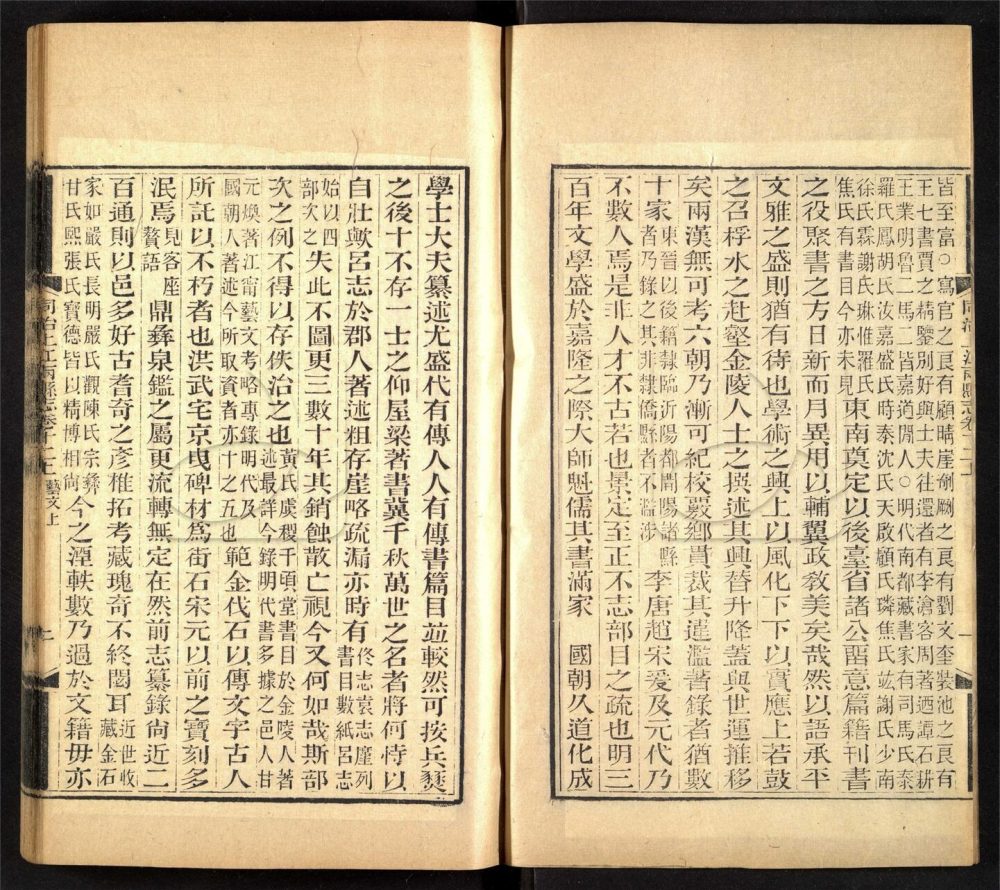 皆至富○寫官之良有顧晴崖劍劂之良有劉文奎裝池之良有
王七書賈之精鑒別好與士夫往還者有李滄客周著迺譚石耕
王業明魯二馬二皆嘉道閒人○明代南都藏書家有司馬氏泰
羅氏鳳胡氏汝嘉盛氏時泰沈氏天啟顧氏璘焦氏竑謝氏少南
徐氏霖謝氏琳惟羅氏
焦氏有書目今亦未見東南奠定以後臺省諸公畱意篇籍刊書
之役聚書之方日新而月異用以輔翼政教美矣哉然以語承平
文雅之盛則猶有待也學術之興上以風化下下以實應上若鼓
之召桴水之赴壑金陵人士之撰述其興替升降蓋與世運推移
矣兩漢無可考六朝乃漸可紀校覈鄉貫裁其違濫著錄者猶數
十家東晉以後籍隸臨沂陽都開陽諸縣
者乃錄之其非隸僑縣者不濫涉李唐趙宋爰及元代乃
不數人焉是非人才不古若也景定至正不志部目之疏也明三
百年文學盛於嘉隆之際大師魁儒其書滿家 國朝久道化成
同治上江兩縣志卷十二上
學士大夫纂述尤盛代有傳人人有傳書篇目並較然可按兵燹
之後十不存一士之仰屋梁著書冀千秋萬世之名者將何恃以
自壯歟呂志於郡人著述粗存崖略疏漏亦時有佟志袁志廑列
書目數紙呂志
始以四
部次之失此不圖更三數十年其銷蝕散亡視今又何如哉斯部
次之例不得以存佚治之也黃氏虞稷千頃堂書目於金陵人著
述最詳今錄明代書多據之邑人甘
元煥著江甯藝文考略專錄明代及
國朝人著述今所取資者亦十之五也範金代石以傳文字古人
所託以不朽者也洪武宅京曳碑材爲街石宋元以前之寶刻多
泯焉見客座
贅語 鼎彝泉鑑之屬更流轉無定在然前志纂錄尚近二
百通則以邑多好古耆奇之彥椎拓考藏瑰奇不終閟耳近世收
藏金石
家如嚴氏長明嚴氏觀陳氏宗彝
甘氏熙張氏寶德皆以精博相尚今之湮軼數乃過於文籍毋亦
同治上江兩縣志卷十二上 藝文上